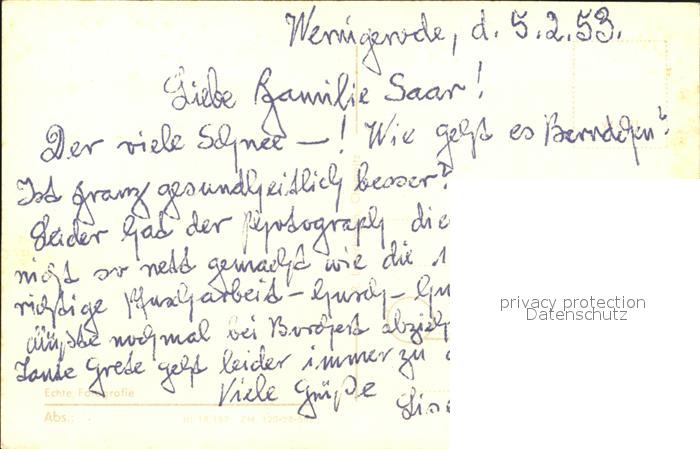 Wernigerode, d. 5.2.53.
Liebe Familie Saar!
Der viele Schnee —! Wie geht es Berndchen?
Ist Franz gesundheitlich besser?
Leider hat der Photograph die
nicht so nett gemacht wie die
richtige Pfuscharbeit – husch – hu
müßte nochmal bei abzieh
Tante Grete geht leider immer zu
Viele Grüße
Echte Fotografie
Abs.:
privacy protection
Datenschutz